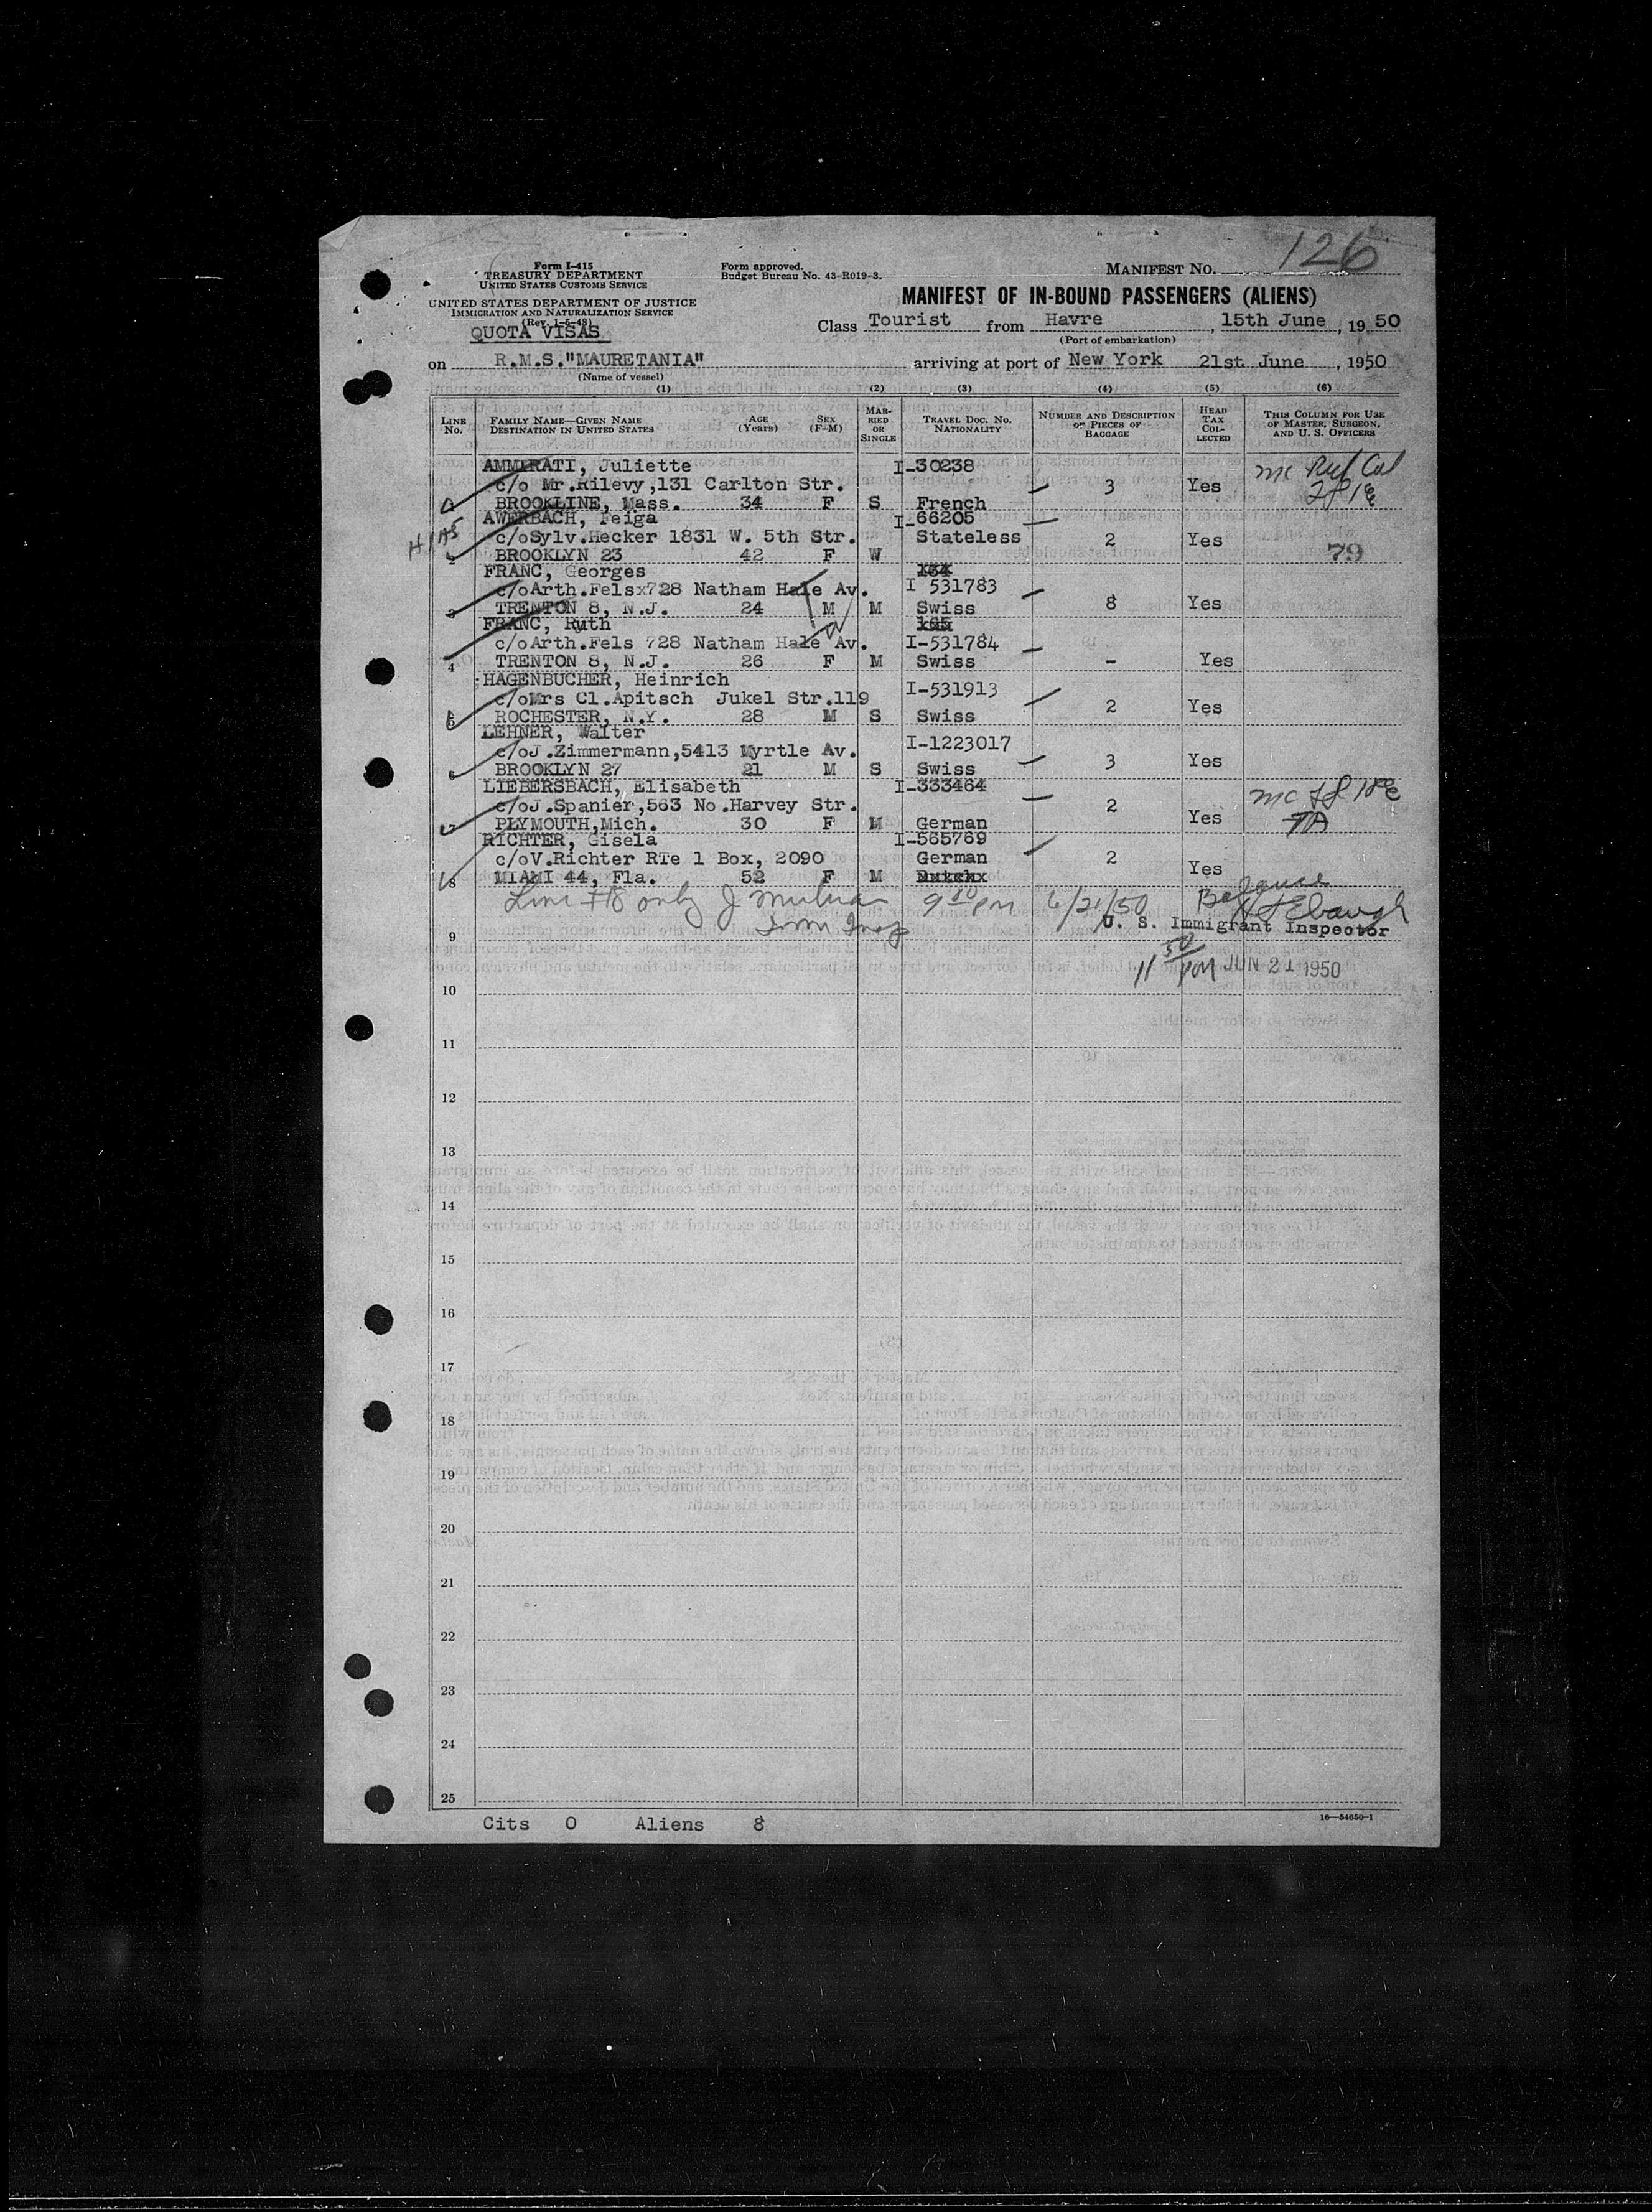 126
Form I-415
TREASURY DEPARTMENT
UNITED STATES CUSTOMS SERVICE
Form approved.
Budget Bureau No. 43-R019-3.
MANIFEST NO.
UNITED STATES DEPARTMENT OF JUSTICE
IMMIGRATION AND NATURALIZATION SERVICE
(Rev. 1-5-48)
QUOTA VISAS
MANIFEST OF IN-BOUND PASSENGERS (ALIENS)
Class Tourist from Havre, 15th June, 1950
(Port of embarkation)
on R.M.S."MAURETANIA" arriving at port of New York 21st June, 1950
(Name of vessel)
(1) (2) (3) (4) (5) (6)
LINE No. FAMILY NAME—GIVEN NAME DESTINATION IN UNITED STATES AGE (Years) SEX (F-M) MARRIED OR SINGLE TRAVEL DOC. NO. NATIONALITY NUMBER AND DESCRIPTION OF PIECES OF BAGGAGE HEAD TAX COLLECTED THIS COLUMN FOR USE OF MASTER, SURGEON, AND U. S. OFFICERS
AMMIRATI, Juliette I-30238
c/o Mr.Rilevy,131 Carlton Str. 3 Yes
BROOKLINE, Mass. 34 F S French
AWERBACH, Feiga I-66205
HIAS c/oSylv.Hecker 1831 W. 5th Str. Stateless 2 Yes
BROOKLYN 23 42 F W 79
FRANC, Georges
c/oArth.Felsx728 Natham Hale Av. I 531783
3 TRENTON 8, N.J. 24 M M Swiss 8 Yes
FRANC, Ruth
c/oArth.Fels 728 Natham Hale Av. I-531784
4 TRENTON 8, N.J. 26 F M Swiss - Yes
HAGENBUCHER, Heinrich
c/oMrs Cl.Apitsch Jukel Str.119 I-531913
5 ROCHESTER, N.Y. 28 M S Swiss 2 Yes
LEHNER, Walter
c/oJ.Zimmermann,5413 Myrtle Av. I-1223017
6 BROOKLYN 27 21 M S Swiss 3 Yes
LIEBERSBACH, Elisabeth I-333464
c/oJ.Spanier,563 No.Harvey Str. 2
7 PLYMOUTH,Mich. 30 F M German Yes
RICHTER, Gisela I-565769
c/oV.Richter RTe 1 Box, 2090 German 2
8 MIAMI 44, Fla. 52 F M Yes
only 9 PM 6/21/50 Balance
U. S. Immigrant Inspector
9
11 50 PM JUN 21 1950
10
11
12
13
14
15
16
17
18
19
20
21
22
23
24
25
Cits 0 Aliens 8
16—54650-1